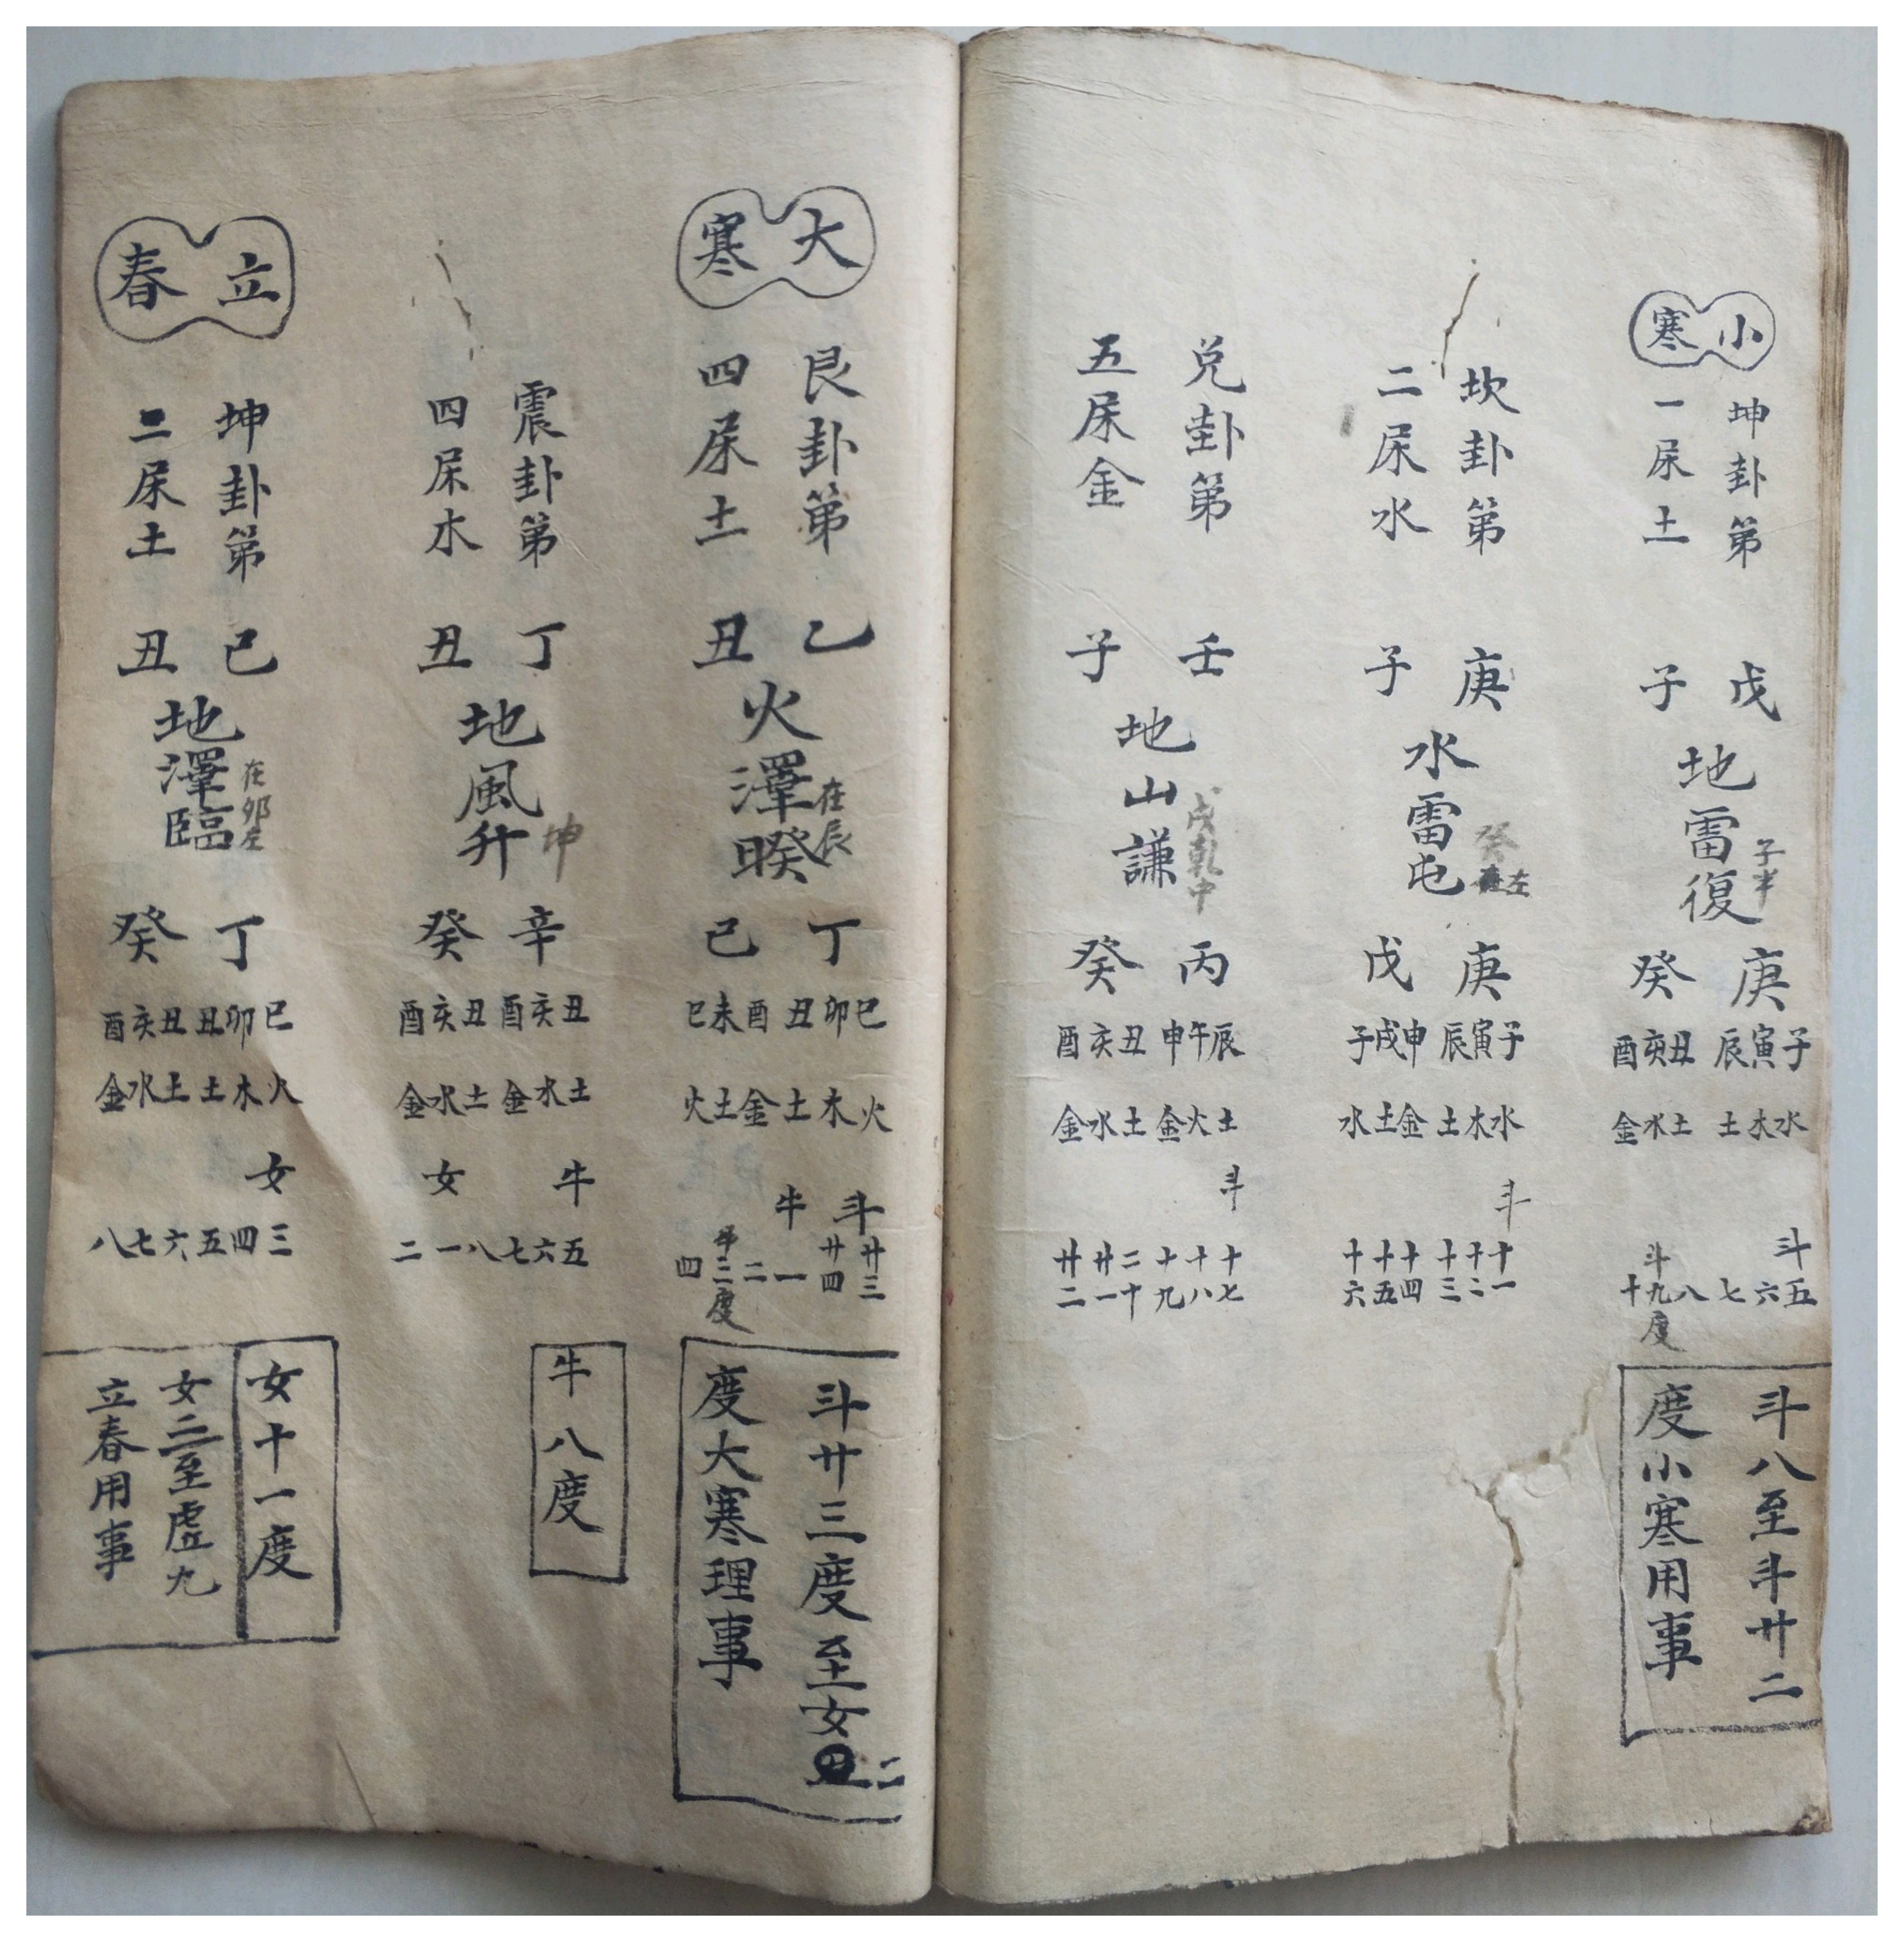 小寒
坤卦第
一屎土
戊子
地雷復
子半
庚癸
子寅辰 丑亥酉
水木土 土水金
斗
五六七八九十
斗
度
斗八至斗廿二
度小寒用事
坎卦第
二屎水
庚子
水雷屯
癸
左
庚戊
子寅辰 申戌子
水木土 金土水
斗
十一 十二 十三 十四 十五 十六
兑卦第
五屎金
壬子
地山謙
戌乾中
丙癸
辰午申 丑亥酉
土火金 土水金
斗
十七 十八 十九 二十 廿一 廿二
大寒
艮卦第
四屎土
乙丑
火澤睽
在辰
丁己
巳卯丑 酉未巳
火木土 金土火
斗 牛
廿三 廿四 一二三四
牛
度
斗廿三度至女二
度大寒理事
震卦第
四屎木
丁丑
地風升
坤
辛癸
丑亥酉 丑亥酉
土水金 土水金
牛 女
五六七八一二
牛八度
立春
坤卦第
二屎土
己丑
地澤臨
在卯左
丁癸
巳卯丑 丑亥酉
火木土 土水金
女
三四五六七八
女十一度
女二至虛九
立春用事